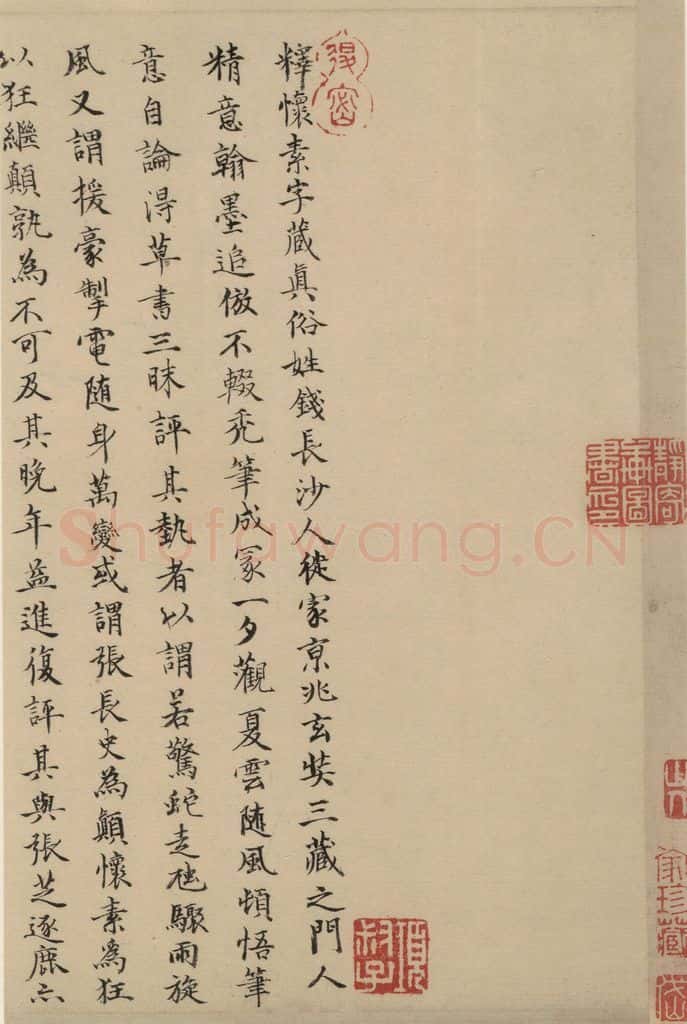 釋懷素字藏眞俗姓錢長沙人徙家京兆玄奘三藏之門人
精意翰墨追倣不輟禿筆成冢一夕觀夏雲隨風頓悟筆
意自論得草書三昧評其埶者以謂若驚蛇走虺驟雨旋
風又謂援豪掣電隨身萬變或謂張長史為顛懷素為狂
以狂繼顛孰為不可及其晚年益進復評其與張芝逐鹿亦
項叔子
家珍藏
Shufawang.CN